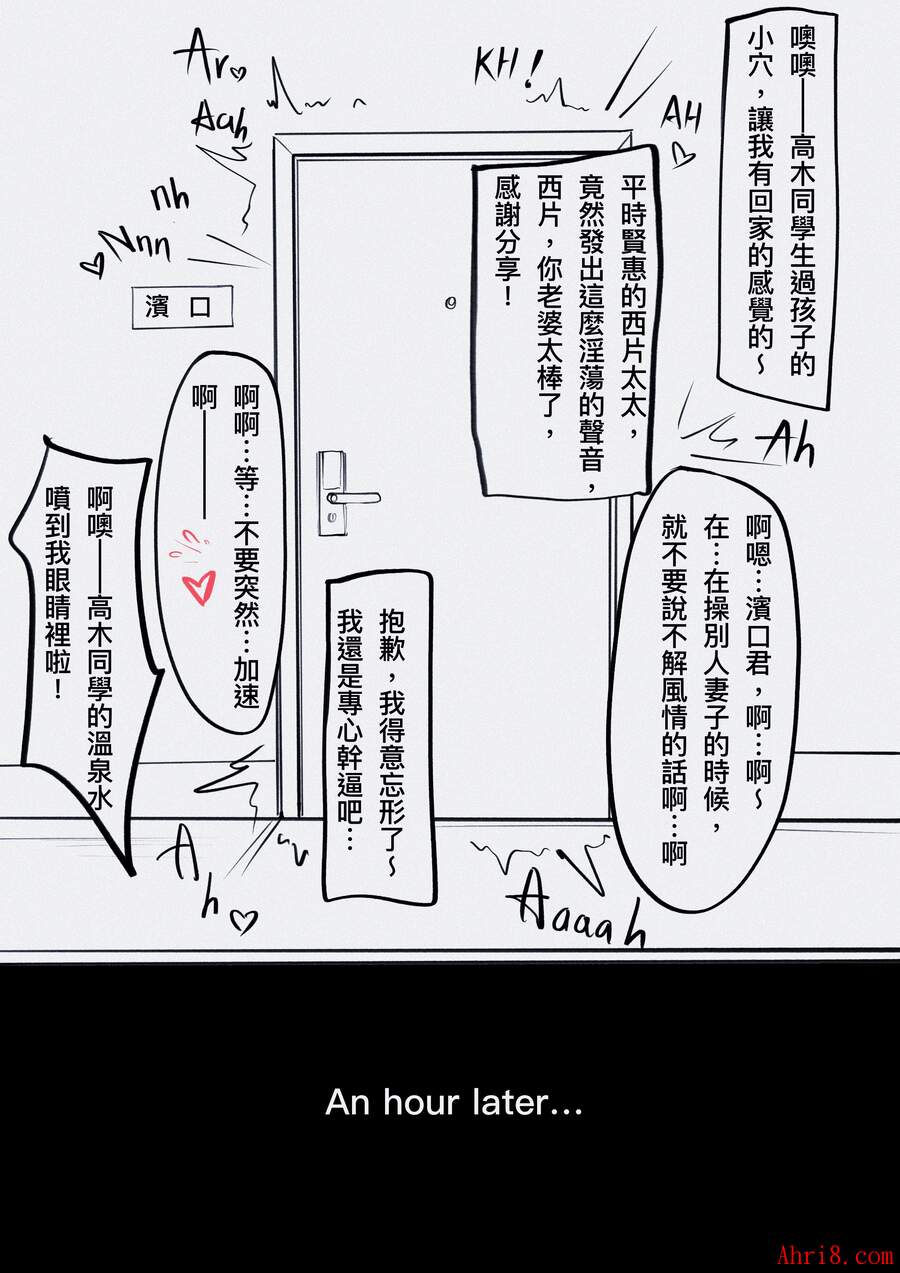 Ar
Aah
nh
Nnn
KH!
AH
噢噢——高木同學生過孩子的
小穴，讓我有回家的感覺的～
平時賢惠的西片太太，
竟然發出這麼淫蕩的聲音，
西片，你老婆太棒了，
感謝分享！
濱口
Ah
啊嗯…濱口君，啊…啊～
在…在操別人妻子的時候，
就不要說不解風情的話啊…啊
抱歉，我得意忘形了～
我還是專心幹逼吧…
啊啊…等…不要突然…加速
啊——
啊噢——高木同學的溫泉水
噴到我眼睛裡啦！
Ah
Aaaah
An hour later...
Ahri8.com